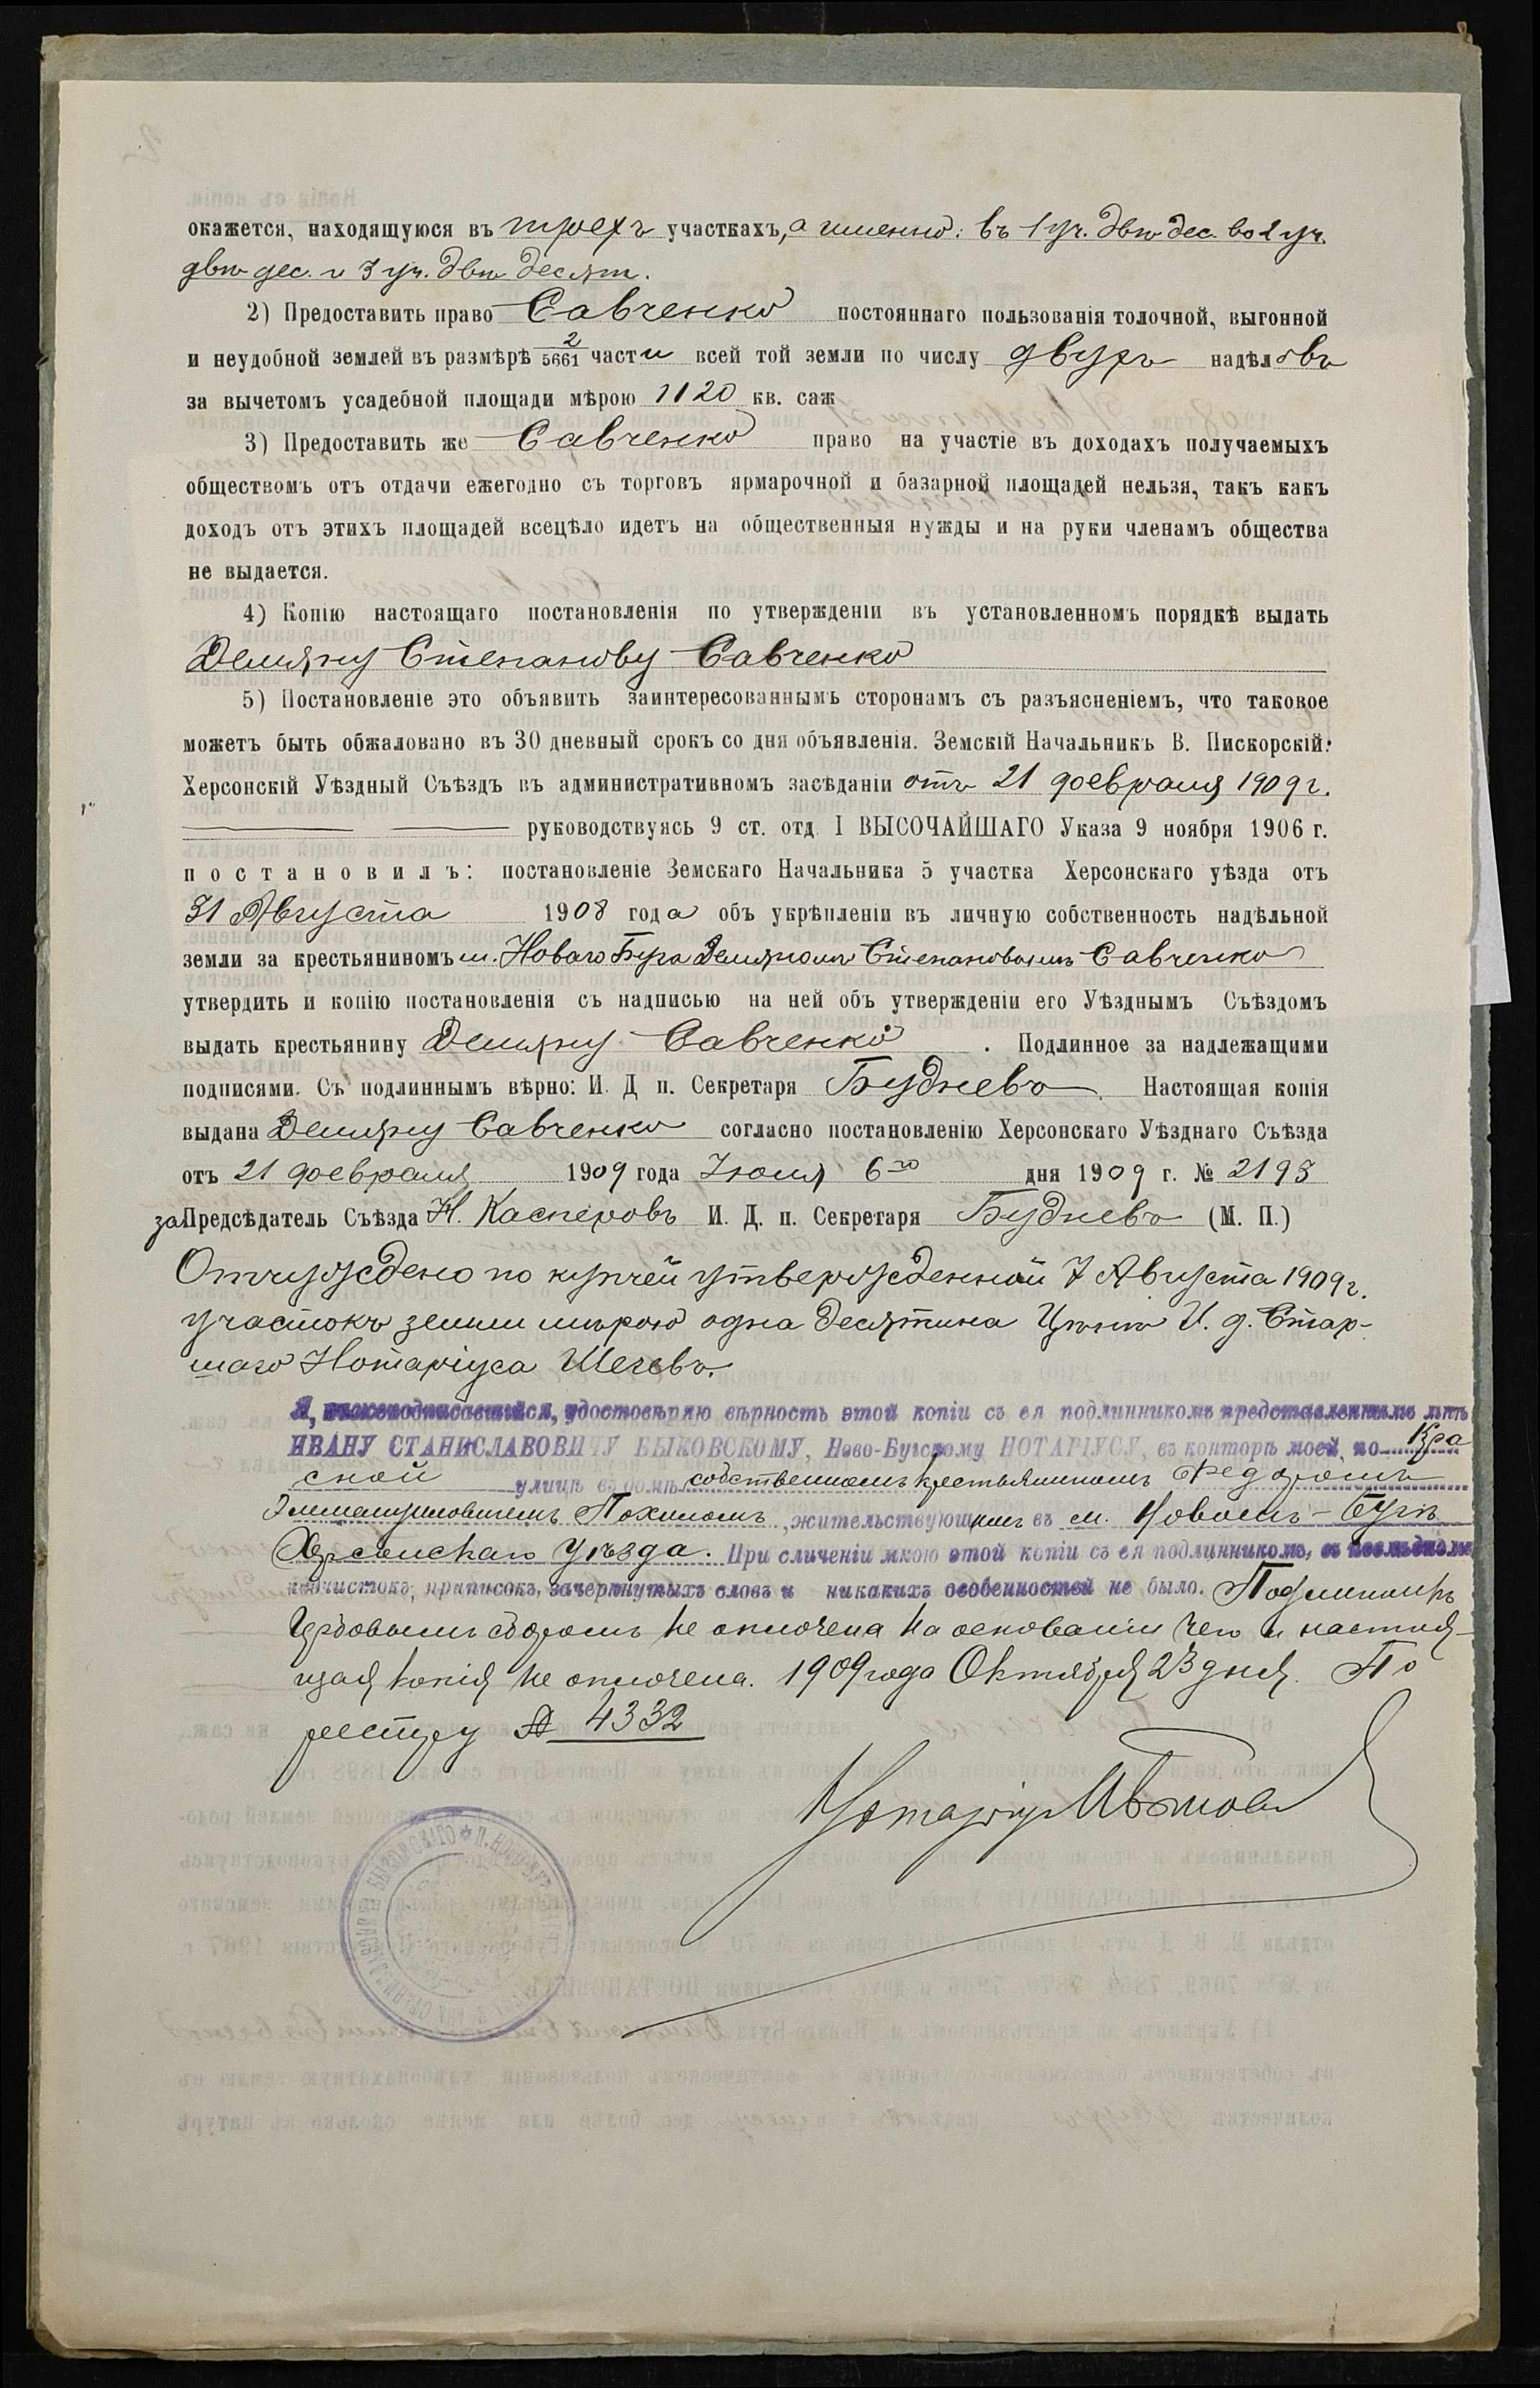 окажется, находящуюся въ трехъ участкахъ, а именно: въ 1 уч. двѣ дес. во 2 уч.
двѣ дес. и 3 уч. двѣ десят.
2) Предоставить право Савченко постояннаго пользованія толочной, выгонной
и неудобной землей въ размѣрѣ 2/5661 части всей той земли по числу двухъ надѣловъ
за вычетомъ усадебной площади мѣрою 1120 кв. саж
3) Предоставить же Савченко право на участіе въ доходахъ получаемыхъ
обществомъ отъ отдачи ежегодно съ торговъ ярмарочной и базарной площадей нельзя, такъ какъ
доходъ отъ этихъ площадей всецѣло идетъ на общественныя нужды и на руки членамъ общества
не выдается.
4) Копію настоящаго постановленія по утвержденіи въ установленномъ порядкѣ выдать
Демяну Степанову Савченко
5) Постановленіе это объявить заинтересованнымъ сторонамъ съ разъясненіемъ, что таковое
можетъ быть обжаловано въ 30 дневный срокъ со дня объявленія. Земскій Начальникъ В. Пискорскій.
Херсонскій Уѣздный Съѣздъ въ административномъ засѣданіи отъ 21 февраля 1909 г.
руководствуясь 9 ст. отд. I ВЫСОЧАЙШАГО Указа 9 ноября 1906 г.
постановилъ: постановленіе Земскаго Начальника 5 участка Херсонскаго уѣзда отъ
31 Августа 1908 года объ укрѣпленіи въ личную собственность надѣльной
земли за крестьяниномъ м. Новаго Буга Демяномъ Степановымъ Савченко
утвердить и копію постановленія съ надписью на ней объ утвержденіи его Уѣзднымъ Съѣздомъ
выдать крестьянину Демяну Савченко. Подлинное за надлежащими
подписями. Съ подлиннымъ вѣрно: И. Д п. Секретаря Будневъ. Настоящая копія
выдана Демяну Савченко согласно постановленію Херсонскаго Уѣзднаго Съѣзда
отъ 21 февраля 1909 года Іюня 6го дня 1909 г. № 2193
за Предсѣдатель Съѣзда Н. Касперовъ И. Д. п. Секретаря Будневъ (М. П.)
Отчуждено по купчей утвержденной 7 Августа 1909 г.
участокъ земли мѣрою одна десятина И. д. Стар-
шаго Нотаріуса
Я, нижеподписавшійся, удостовѣряю вѣрность этой копіи съ ея подлинникомъ представленнымъ мнѣ
ИВАНУ СТАНИСЛАВОВИЧУ БЫКОВСКОМУ, Ново-Бугскому НОТАРІУСУ, въ конторѣ моей, по Кра
сной улицѣ въ домѣ собственномъ крестьяниномъ Федоромъ
Похиломъ, жительствующимъ въ м. Новомъ-Бугѣ
Херсонскаго уѣзда. При сличеніи мною этой копіи съ ея подлинникомъ, въ послѣднемъ
подчистокъ, приписокъ, зачеркнутыхъ словъ и никакихъ особенностей не было. Подлинникъ
гербовымъ сборомъ не оплочена на основаніи чего и настоя-
щая копія не оплочена. 1909 года Октября 23 дня. По
реестру № 4332
Нотаріусъ